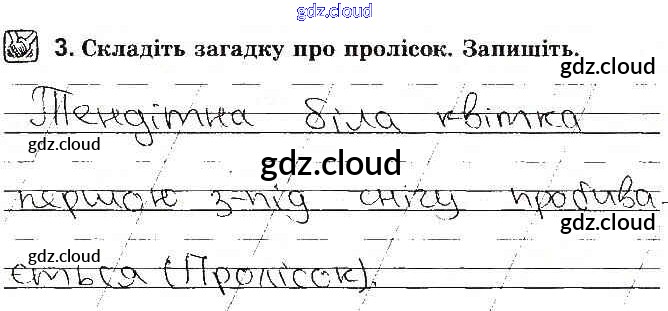 gdz.cloud
3. Складіть загадку про пролісок. Запишіть.
gdz.cloud
Тендітна біла квітка
gdz.cloud
gdz.cloud
першою з-під снігу пробива-
gdz.cloud
gdz.cloud
ється (Пролісок).
gdz.cloud
gdz.cloud